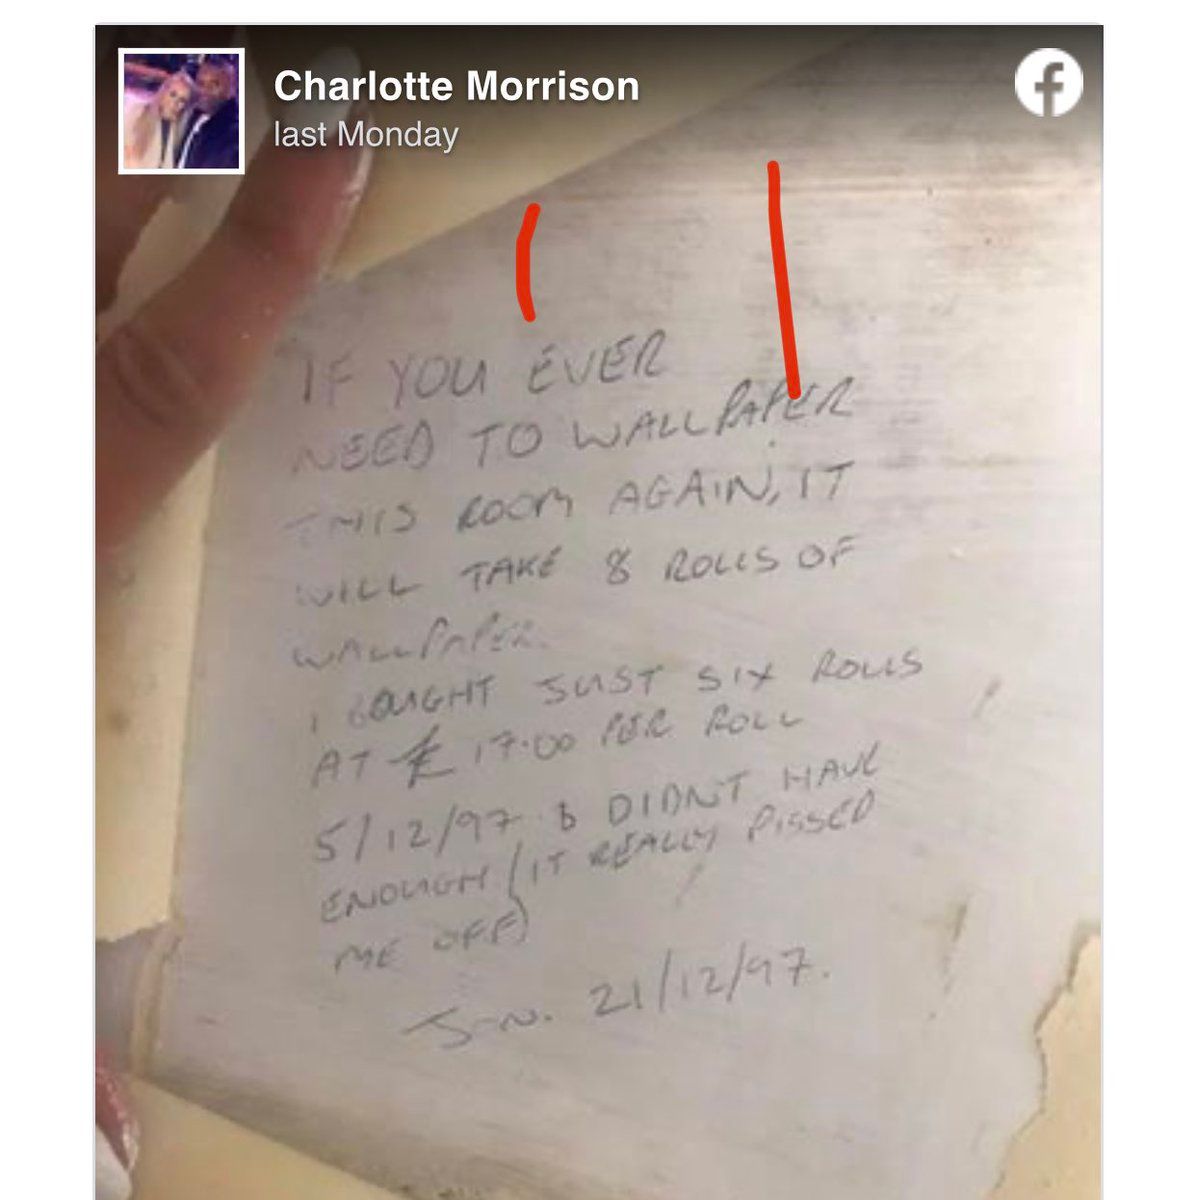 Charlotte Morrison
last Monday
IF YOU EVER
NEED TO WALLPAPER
THIS ROOM AGAIN, IT
WILL TAKE 8 ROLLS OF
WALLPAPER.
I BOUGHT JUST SIX ROLLS
AT £17.00 PER ROLL
5/12/97 & DIDNT HAVE
ENOUGH (IT REALLY PISSED
ME OFF)
J-N. 21/12/97.